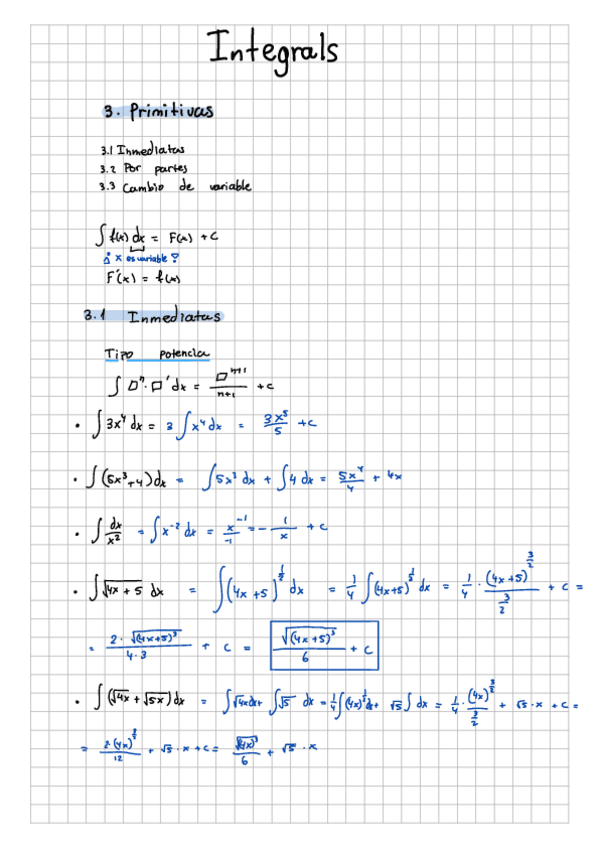 Integrals
3. Primitivas
3.1 Inmediatas
3.2 Por partes
3.3 Cambio de variable
∫ f(x) dx = F(x) + C
¿ x es variable ?
F'(x) = f(x)
3.1 Inmediatas
Tipo potencia
∫ □ⁿ · □' dx = □ⁿ⁺¹/(n+1) + C
• ∫ 3x⁴ dx = 3 ∫ x⁴ dx = 3x⁵/5 + C
• ∫ (5x³ + 4) dx = ∫ 5x³ dx + ∫ 4 dx = 5x⁴/4 + 4x
• ∫ dx/x² = ∫ x⁻² dx = x⁻¹/-1 = - 1/x + C
• ∫ √(4x + 5) dx = ∫ (4x + 5)^(1/2) dx = 1/4 ∫ (4x+5)^(1/2) dx = 1/4 · (4x+5)^(3/2)/(3/2) + C =
= 2 · √(4x+5)³/(4 · 3) + C = √(4x+5)³/6 + C
• ∫ (√4x + √5x) dx = ∫ √4x dx + ∫ √5 dx = 1/4 ∫ (4x)^(1/2) dx + √5 ∫ dx = 1/4 · (4x)^(3/2)/(3/2) + √5 · x + C =
= 2·(4x)^(3/2)/12 + √5 · x + C = √(4x)³/6 + √5 · x